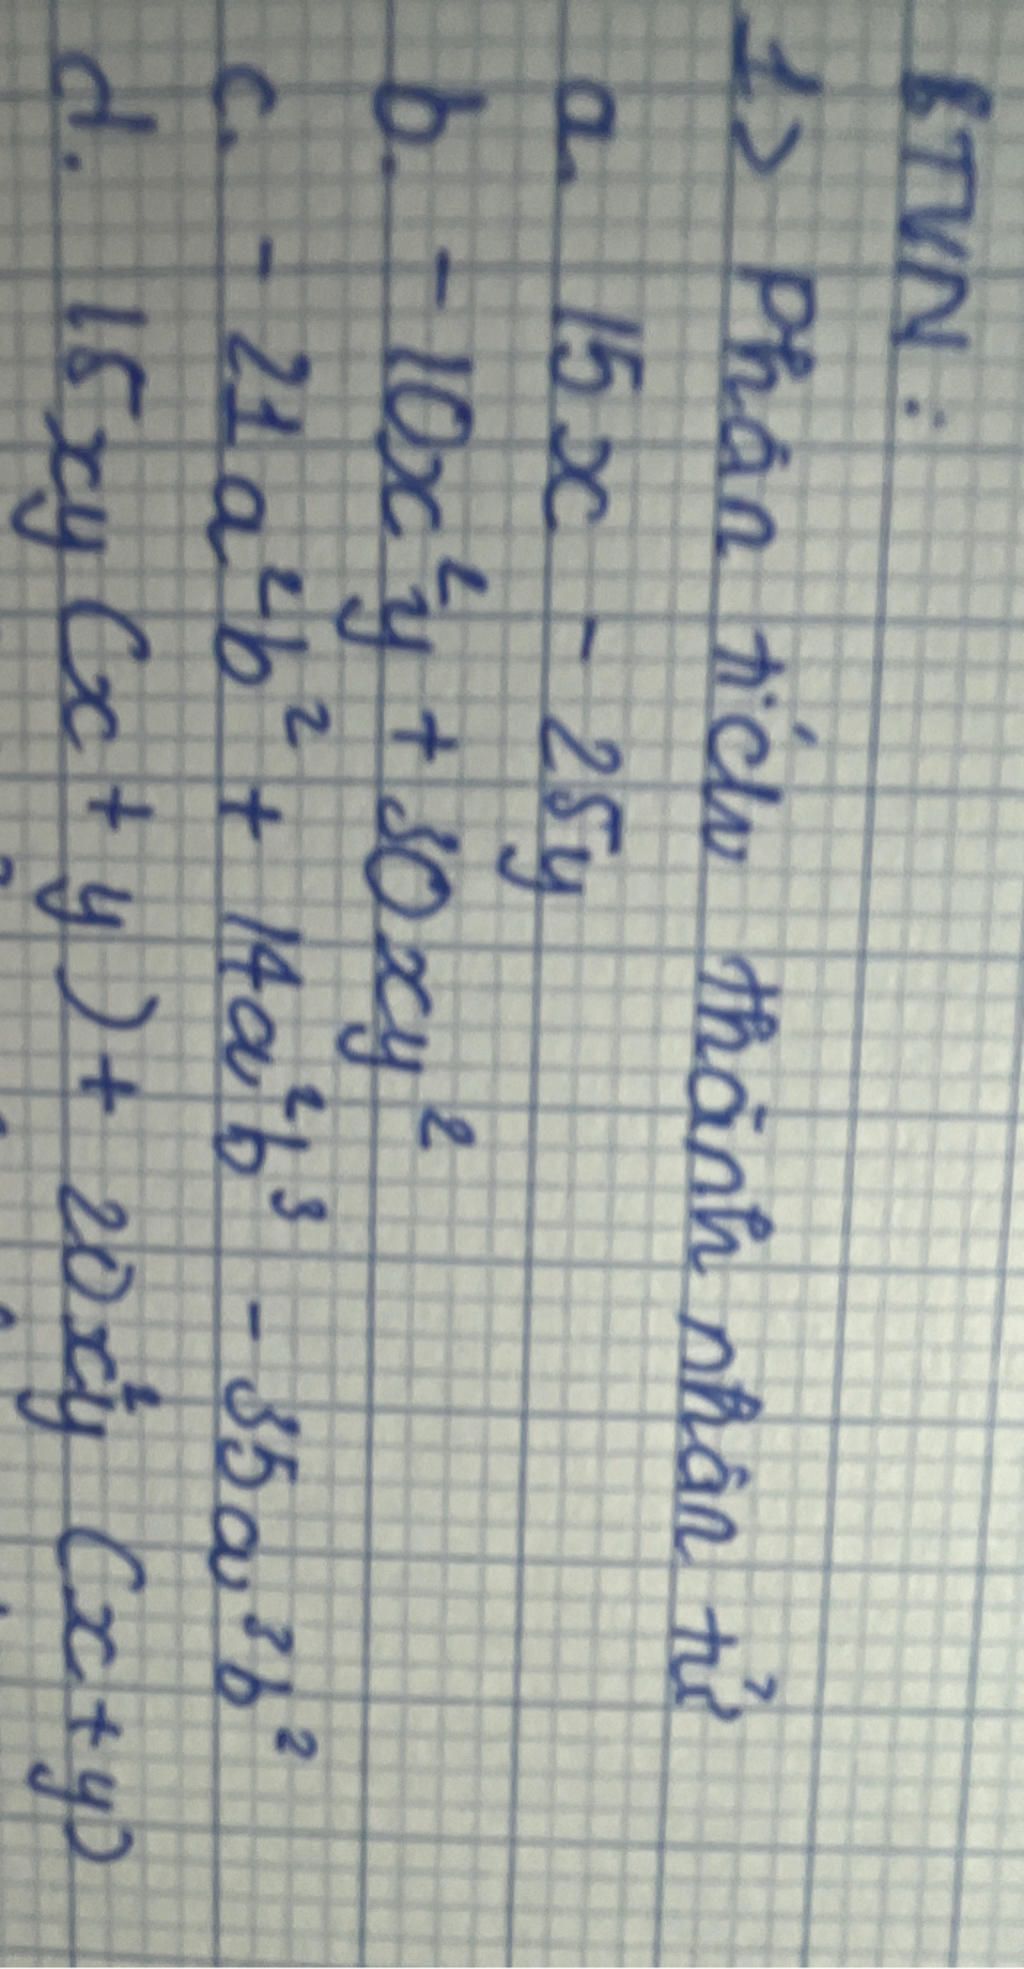 BTVN :
1> Phân tích thành nhân tử
a. 15x - 25y
b. - 10x²y + 30xy²
c. - 21a²b² + 14a²b³ - 35a³b²
d. 15xy (x + y) + 20x²y (x + y)